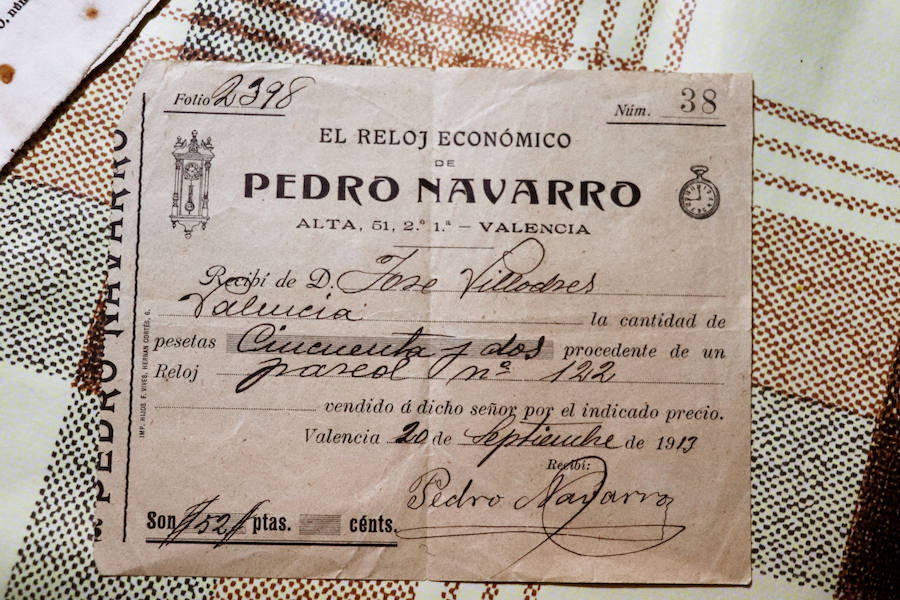 O. núm
Folio 2398
Núm. 38
EL RELOJ ECONÓMICO
DE
PEDRO NAVARRO
ALTA, 51, 2.º 1.ª – VALENCIA
Recibí de D. Jose Villodres
Valencia la cantidad de
pesetas Cincuenta y dos procedente de un
Reloj pareol nº 122
vendido á dicho señor por el indicado precio.
Valencia 20 de Septiembre de 1913
Recibí:
Pedro Navarro
Son 52 ptas. cénts.
PEDRO NAVARRO
IMP. HIJOS F. VIVES, HERNAN CORTÉS, 6.